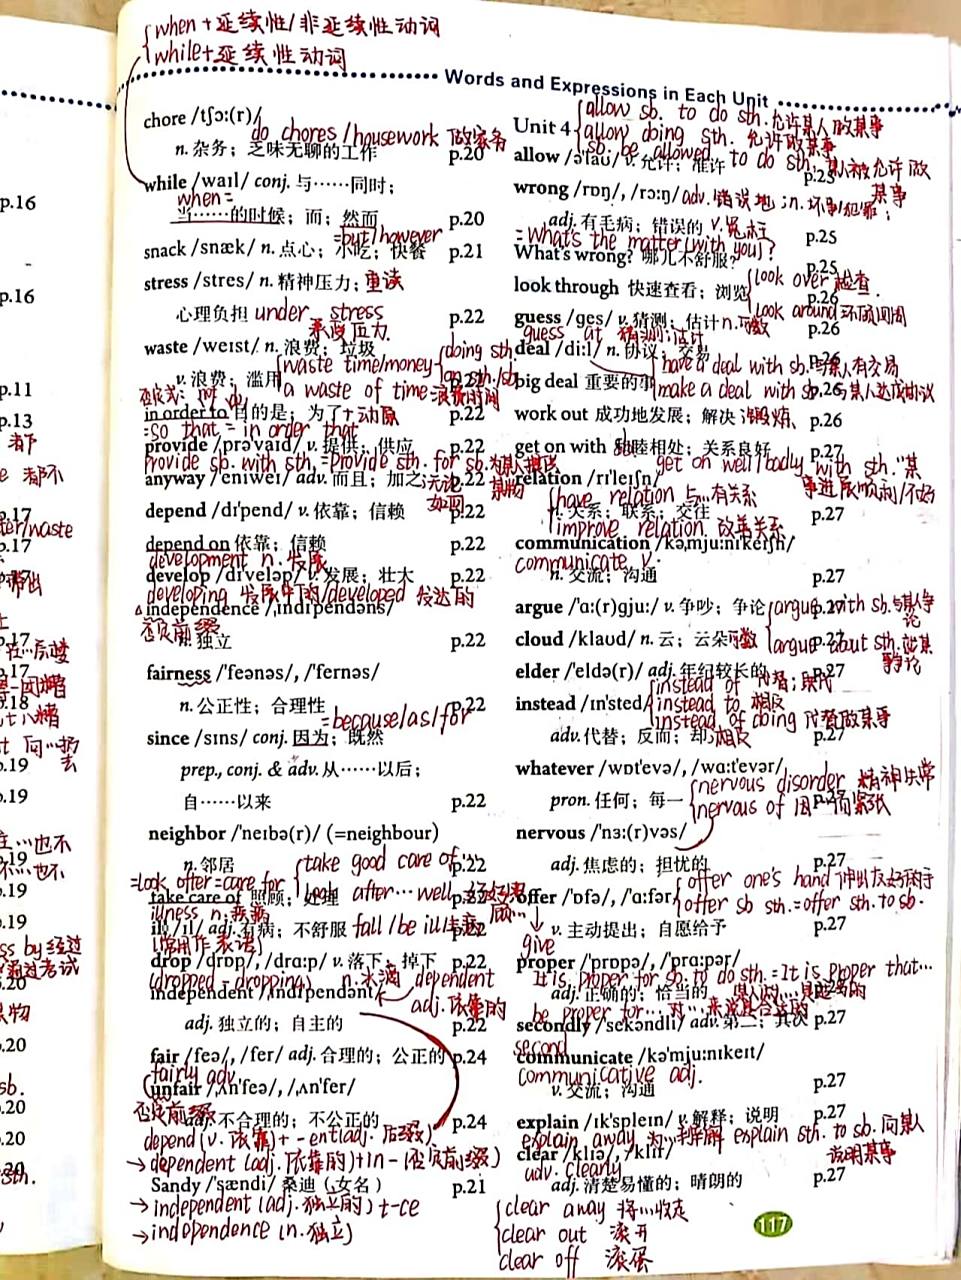 when + 延续性/非延续性动词
while + 延续性动词
Words and Expressions in Each Unit
chore /tʃɔ:(r)/
do chores/housework 做家务
n. 杂务；乏味无聊的工作 p.20
while /waɪl/ conj. 与……同时；
when=
当……的时候；而；然而 p.20
=but/however
snack /snæk/ n. 点心；小吃；快餐 p.21
stress /stres/ n. 精神压力；重读
心理负担 under stress p.22
承受压力
waste /weɪst/ n. 浪费；垃圾
waste time/money doing sth.
on sth./sb.
v. 浪费；滥用
a waste of time 浪费时间
in order to 目的是；为了 +动原 p.22
=so that = in order that
provide /prəˈvaɪd/ v. 提供；供应 p.22
provide sb. with sth. = provide sth. for sb.
anyway /ˈeniweɪ/ adv. 而且；加之 p.22
无论如何
depend /dɪˈpend/ v. 依靠；信赖 p.22
depend on 依靠；信赖 p.22
development n. 发展
develop /dɪˈveləp/ v. 发展；壮大 p.22
developing 发展中的/developed 发达的
independence /ˌɪndɪˈpendəns/
否定前缀
n. 独立 p.22
fairness /ˈfeənəs/, /ˈfernəs/
n. 公正性；合理性 p.22
=because/as/for
since /sɪns/ conj. 因为；既然
prep., conj. & adv. 从……以后；
自……以来 p.22
neighbor /ˈneɪbə(r)/ (=neighbour)
n. 邻居 p.22
take good care of…
=look after=care for
look after…well
take care of 照顾；处理 p.22
illness n. 疾病
ill /ɪl/ adj. 有病；不舒服 fall/be ill 生病 p.22
(常用作表语)
drop /drɒp/, /drɑ:p/ v. 落下；掉下 p.22
(dropped = dropping) n. 水滴 dependent
adj. 依靠的
independent /ˌɪndɪˈpendənt/
adj. 独立的；自主的 p.22
fair /feə/, /fer/ adj. 合理的；公正的 p.24
fairly adv.
unfair /ˌʌnˈfeə/, /ˌʌnˈfer/
否定前缀
adj. 不合理的；不公正的 p.24
depend (v. 依靠) + -ent (adj. 后缀)
→ dependent (adj. 依靠的) + in- (否定前缀)
Sandy /ˈsændi/ 桑迪（女名） p.21
→ independent (adj. 独立的) + -ce
→ independence (n. 独立)
Unit 4
allow sb. to do sth. 允许某人做某事
allow doing sth. 允许做某事
sb. be allowed to do sth. 某人被允许做某事
allow /əˈlaʊ/ v. 允许；准许 p.25
wrong /rɒŋ/, /rɔ:ŋ/ adv. 错误地；n. 坏事/犯罪；
adj. 有毛病；错误的 v. 冤枉 p.25
=what's the matter (with you)?
What's wrong? 哪儿不舒服？ p.25
look over 检查
look through 快速查看；浏览 p.26
look around 环顾四周
guess /ges/ v. 猜测；估计 n. 可数 p.26
guess at 猜测；估计
deal /di:l/ n. 协议；交易 p.26
have a deal with sb. 与某人有交易
big deal 重要的事 p.26
make a deal with sb. 与某人达成协议
work out 成功地发展；解决 锻炼 p.26
get on with sb. 和睦相处；关系良好 p.27
get on well/badly with sth. "某事进展顺利/不好
relation /rɪˈleɪʃn/
have relation 与…有关系
n. 关系；联系；交往 p.27
improve relation 改善关系
communication /kəˌmju:nɪˈkeɪʃn/
communicate v.
n. 交流；沟通 p.27
argue /ˈɑ:(r)gju:/ v. 争吵；争论 p.27
argue with sb. 与某人争论
cloud /klaʊd/ n. 云；云朵 可数 p.27
argue about sth.
elder /ˈeldə(r)/ adj. 年纪较长的 p.27
instead of 代替；取代
instead /ɪnˈsted/
instead to 相反
instead of doing 代替做某事
adv. 代替；反而；却 相反 p.27
whatever /wɒtˈevə/, /wɑ:tˈevər/
nervous disorder 精神失常
pron. 任何；每一 p.27
nervous of 因…而紧张
nervous /ˈnɜ:(r)vəs/
adj. 焦虑的；担忧的 p.27
offer one's hand 伸出友好的手
offer /ˈɒfə/, /ˈɑ:fər/
offer sb sth. = offer sth. to sb.
give
v. 主动提出；自愿给予 p.27
proper /ˈprɒpə/, /ˈprɑ:pər/
It is proper for sb. to do sth. = It is proper that…
adj. 正确的；恰当的
be proper for…对…来说是合适的
secondly /ˈsekəndli/ adv. 第二；其次 p.27
second
communicate /kəˈmju:nɪkeɪt/
communicative adj.
v. 交流；沟通 p.27
explain /ɪkˈspleɪn/ v. 解释；说明 p.27
explain away 为…辩解 explain sth. to sb. 向某人说明某事
clear /klɪə/, /klɪr/
adv. clearly
adj. 清楚易懂的；晴朗的 p.27
clear away 将…收走
clear out 滚开
clear off 滚蛋
117
p.16
p.16
p.11
p.13
p.17
p.17
p.17
p.17
p.18
p.19
p.19
p.19
p.19
p.20
p.20
p.20
p.20